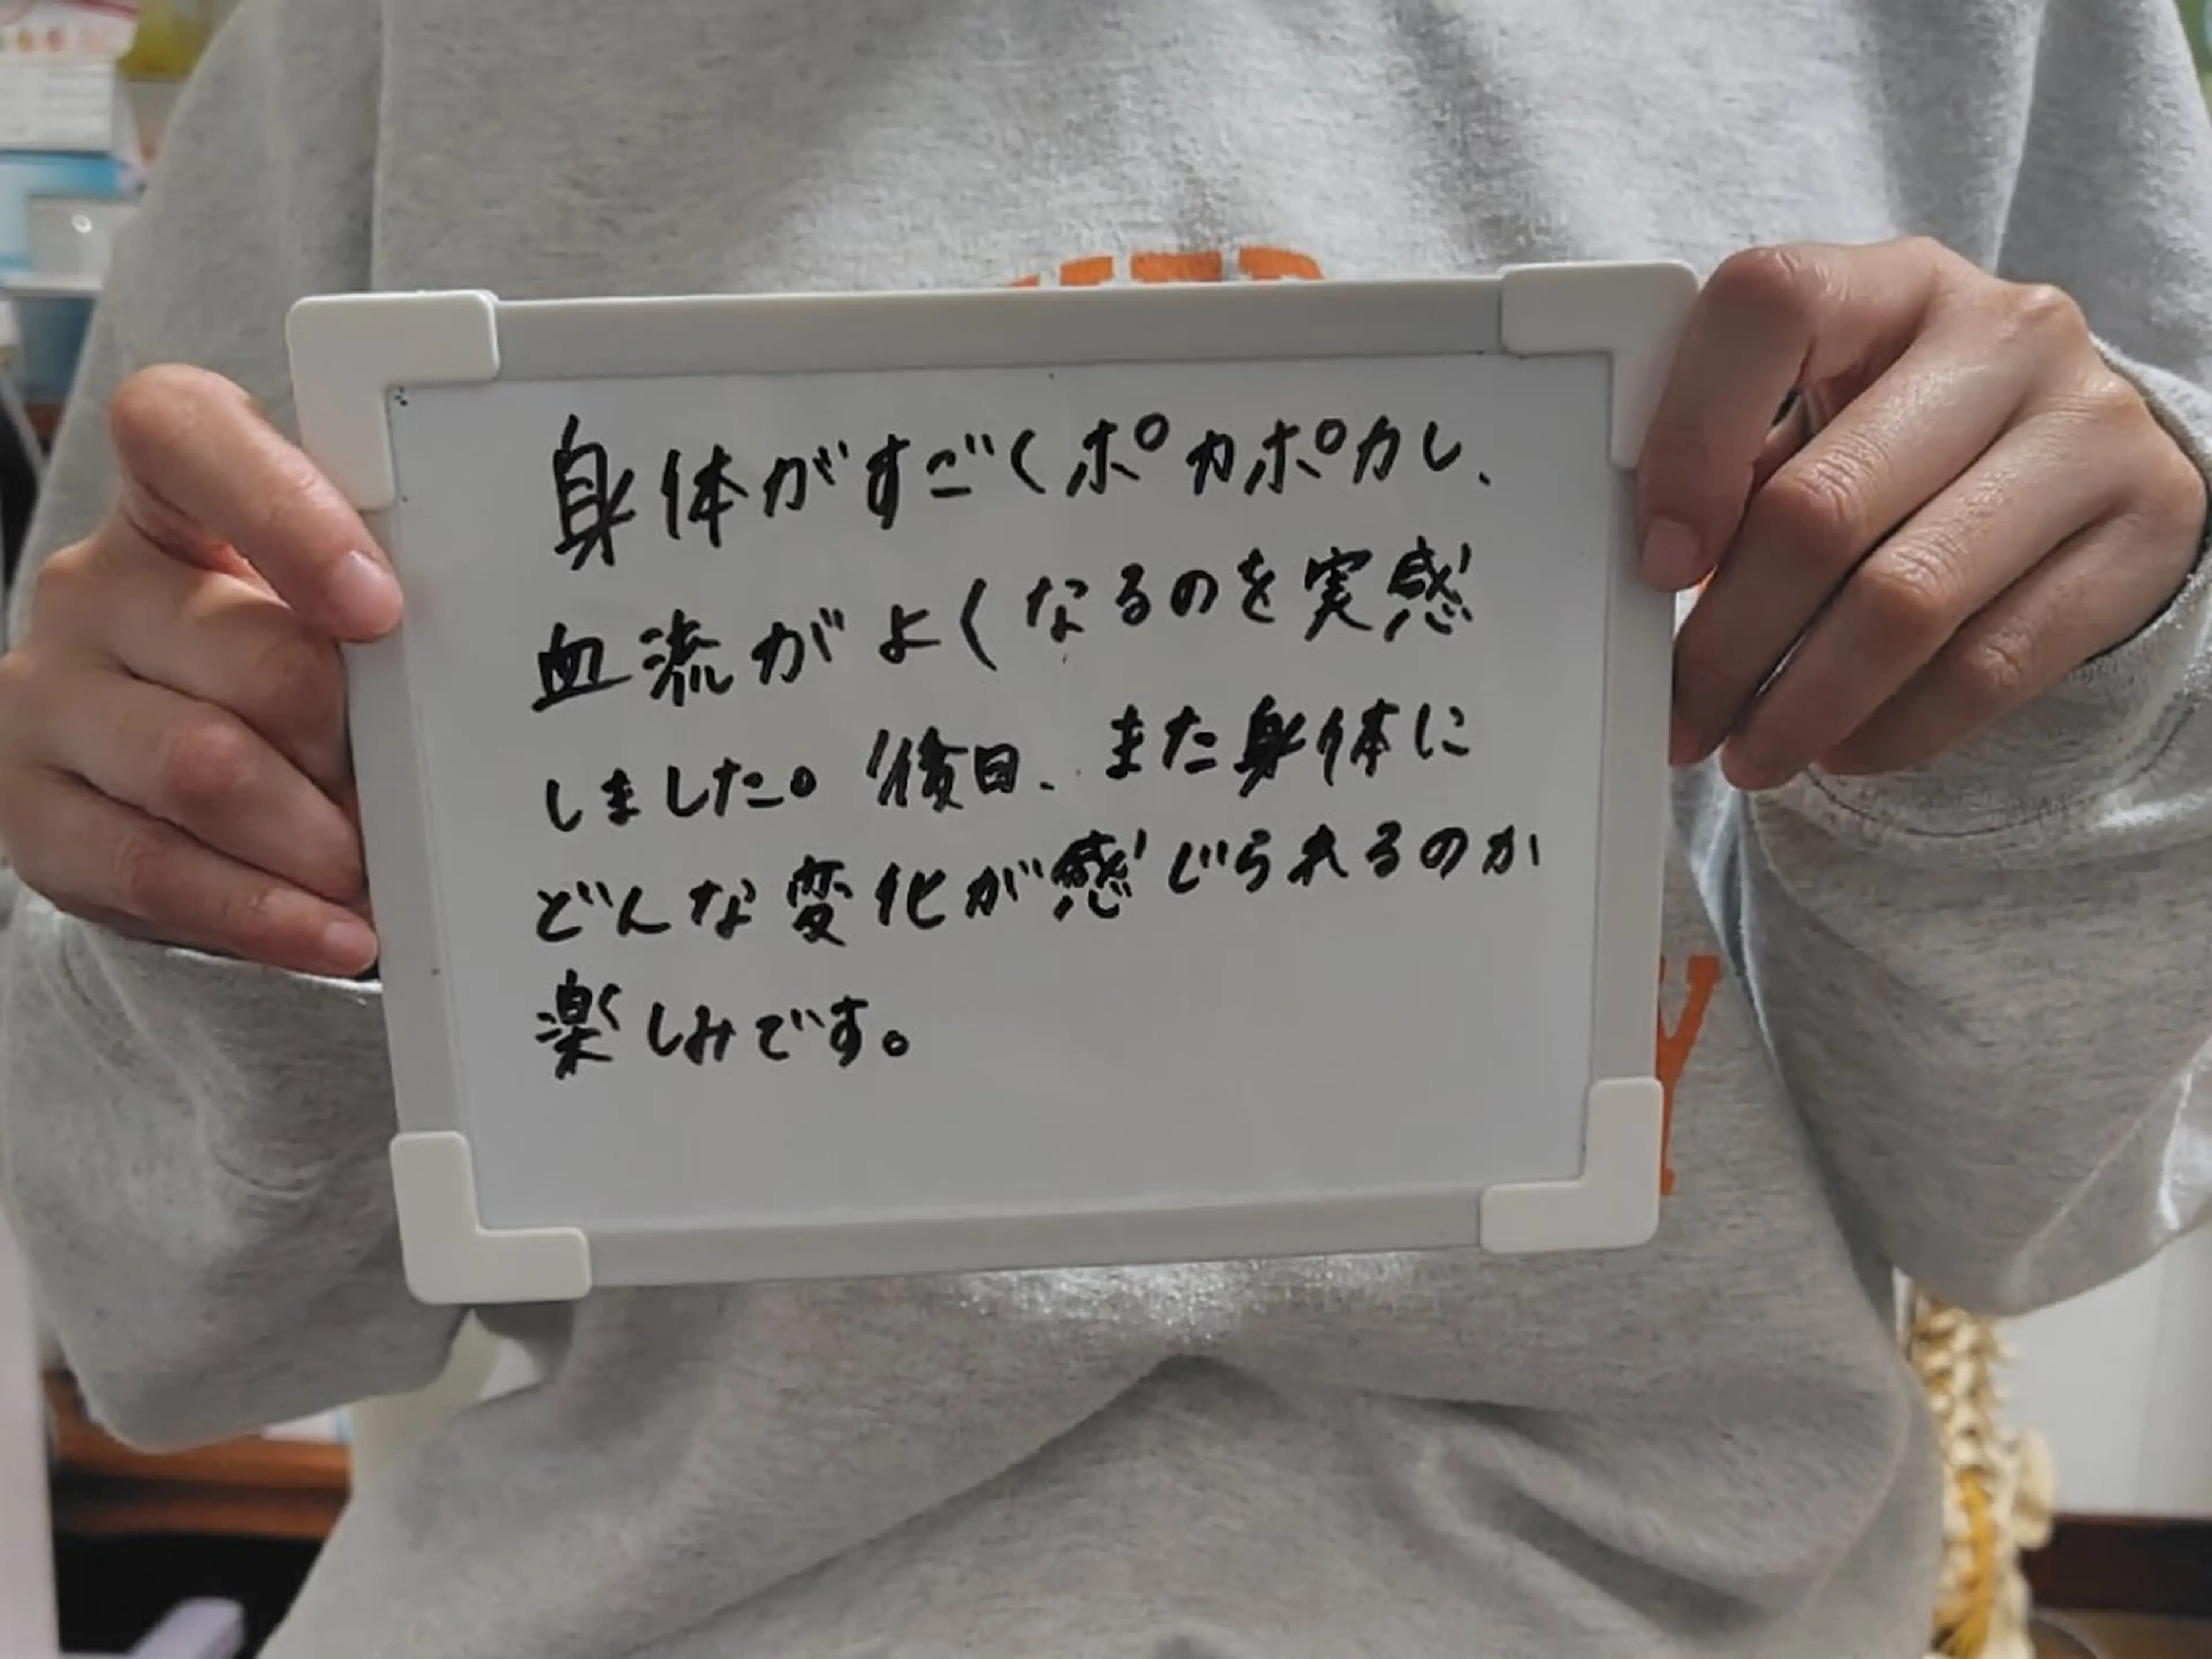 身体がすごくポカポカし、
血流がよくなるのを実感
しました。後日、また身体に
どんな変化が感じられるのか
楽しみです。
Y